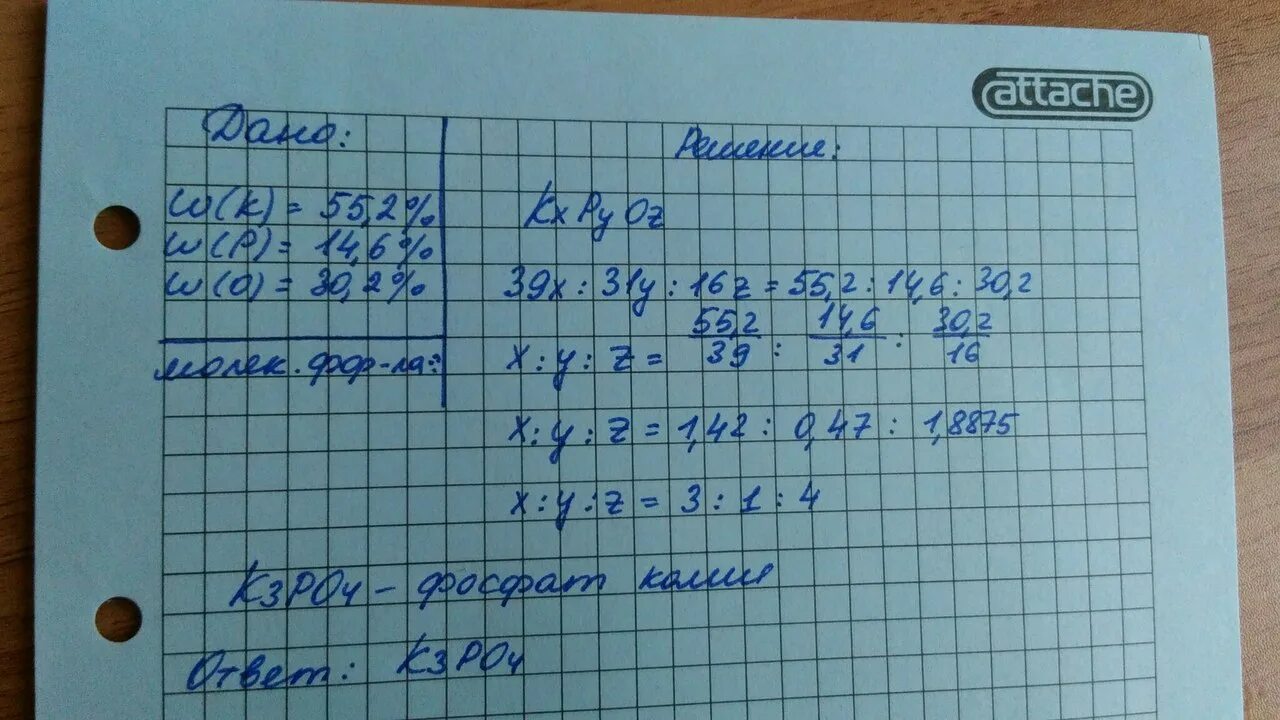 attache
Дано:
w(K) = 55,2%
w(P) = 14,6%
w(O) = 30,2%
молек. фор-ла:
Решение:
KxPyOz
39x : 31y : 16z = 55,2 : 14,6 : 30,2
x : y : z = 55,2/39 : 14,6/31 : 30,2/16
x : y : z = 1,42 : 0,47 : 1,8875
x : y : z = 3 : 1 : 4
K3PO4 – фосфат калия
Ответ: K3PO4